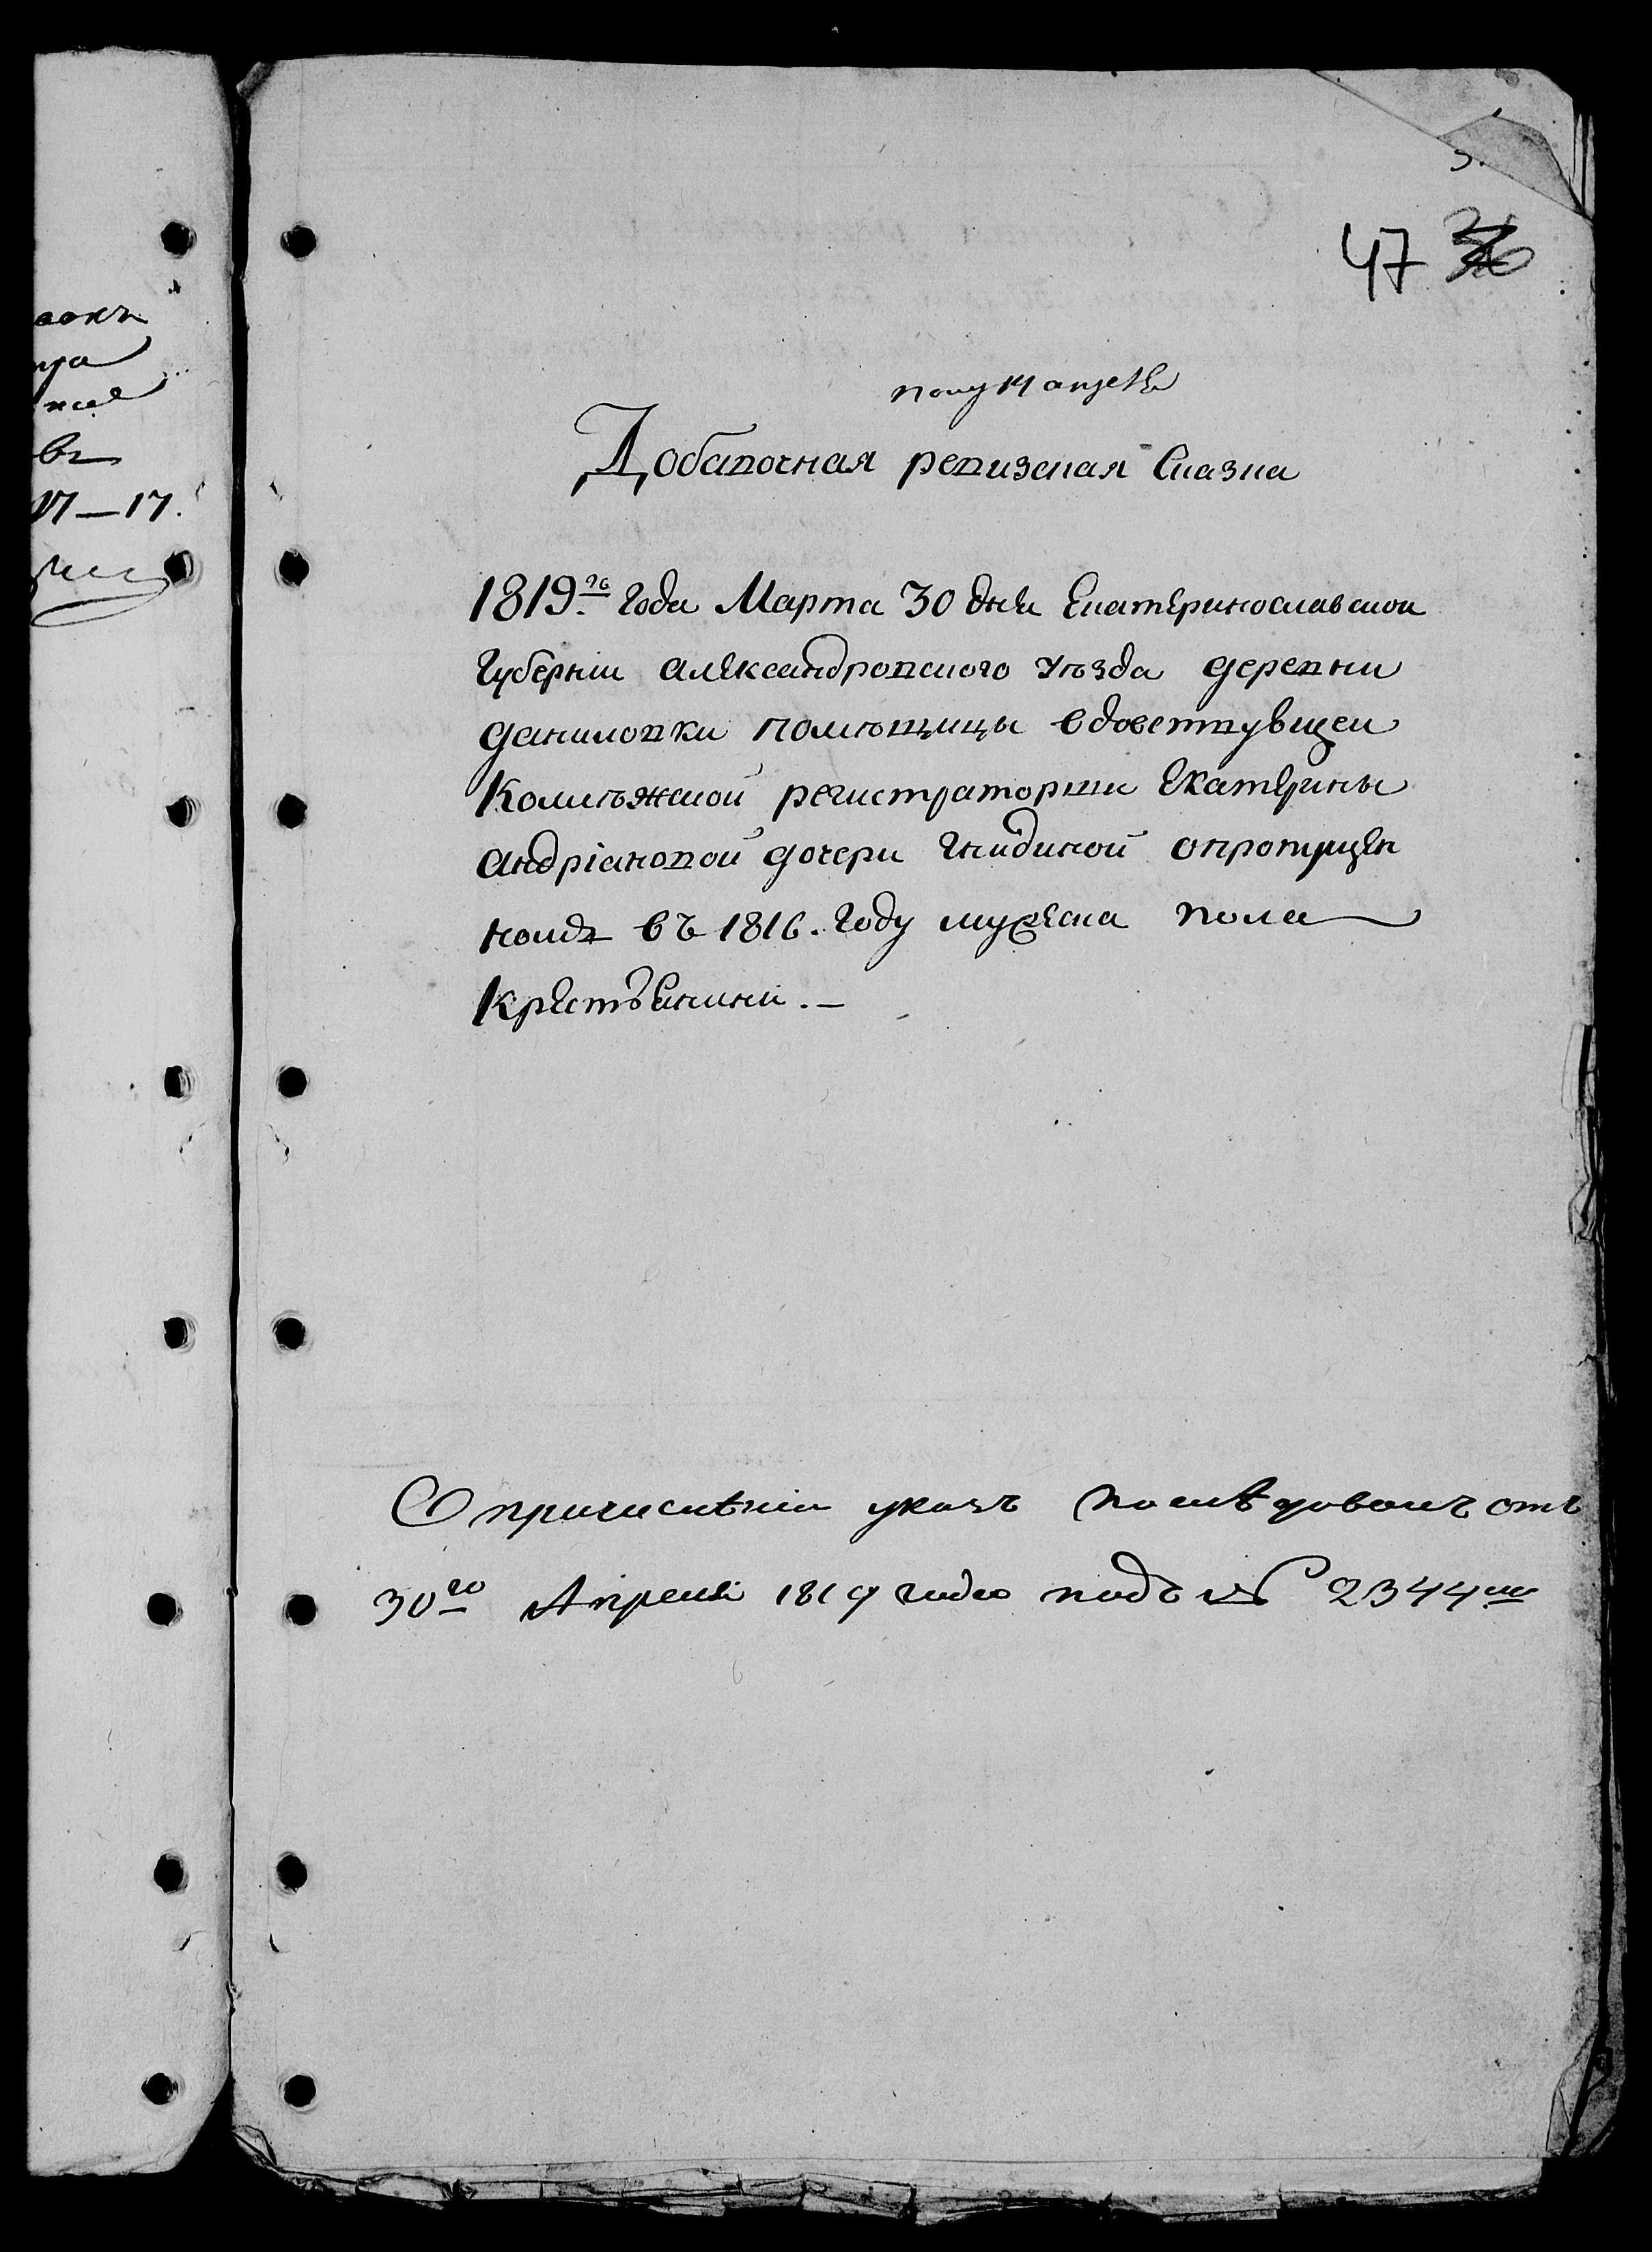 47 36
полу 14 апреля
Добавочная ревизская Сказка
1819го года Марта 30 дня Екатеринославской
Губернии александровского уѣзда деревни
даниловки помѣщицы вдовствующей
Колиѣжской регистраторши Екатерины
андріановой дочери Гнидиной опропущен
номъ въ 1816. году мужеска пола
Крестьянини.—
О причисленіи указъ послѣдовалъ отъ
30го Апреля 1819 года подъ № 2344м
аокъ
въ
17—17.